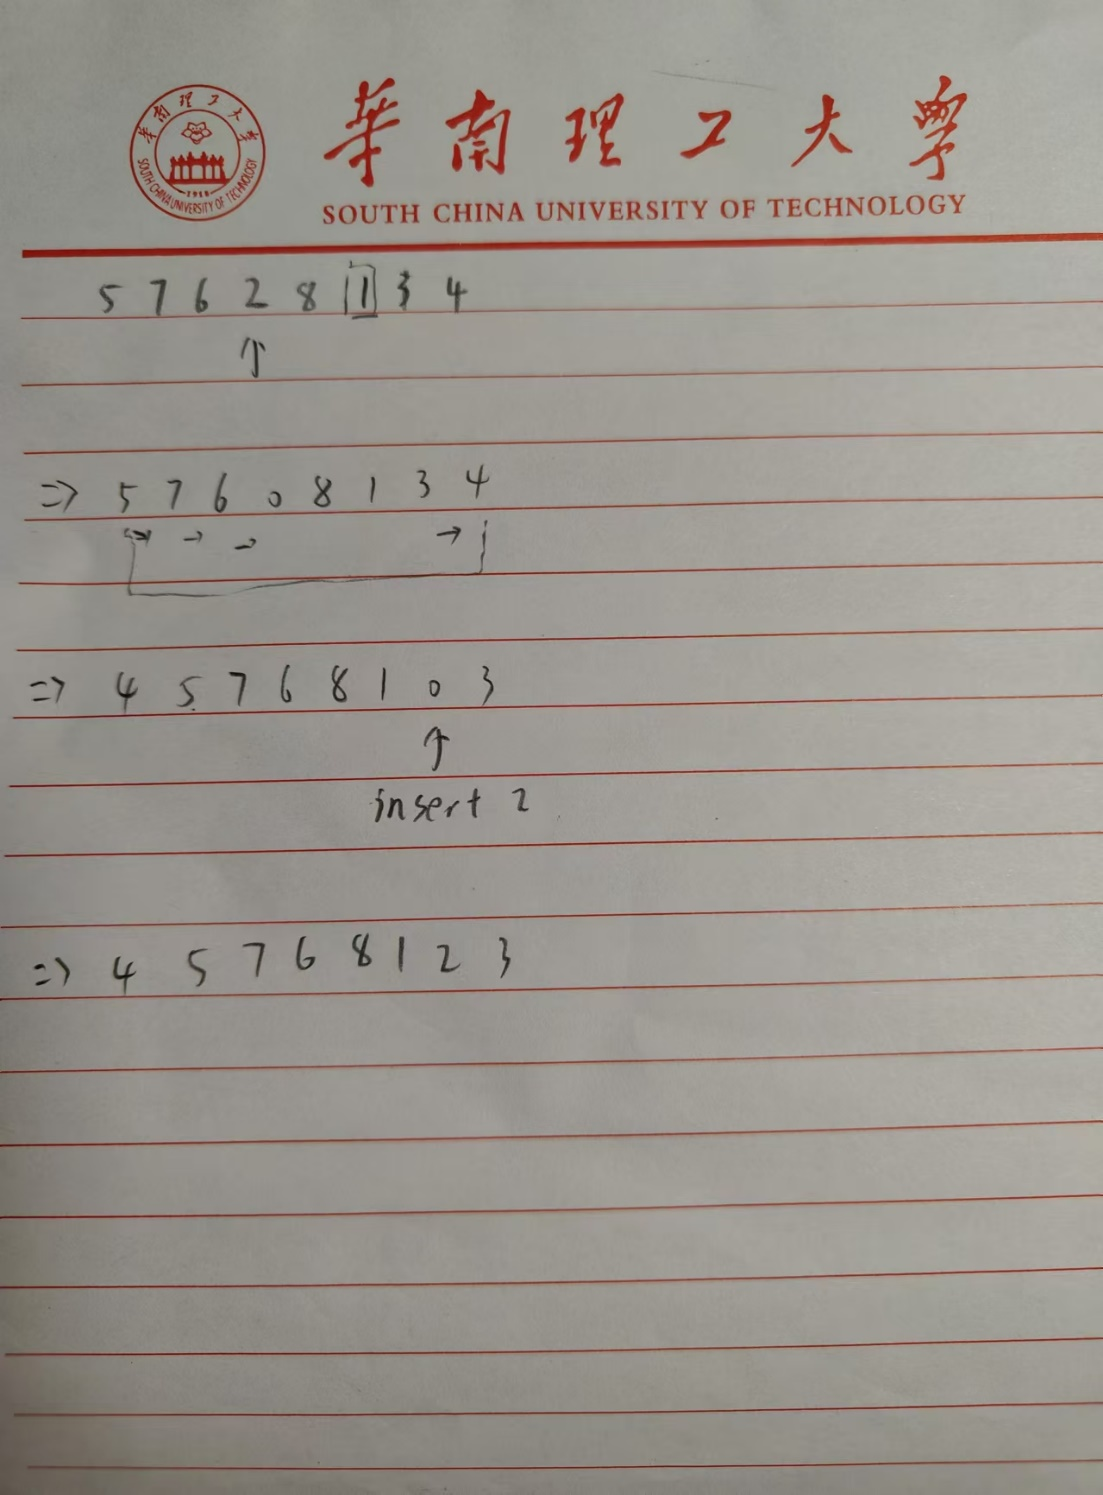 華南理工大學
SOUTH CHINA UNIVERSITY OF TECHNOLOGY
華南理工大學
SOUTH CHINA UNIVERSITY OF TECHNOLOGY
1918
5 7 6 2 8 1 3 4
↑
=> 5 7 6 0 8 1 3 4
→ → → →
=> 4 5 7 6 8 1 0 3
↑
insert 2
=> 4 5 7 6 8 1 2 3